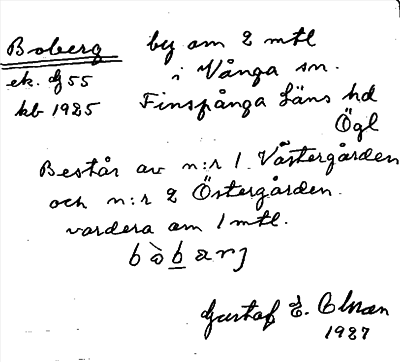 Boberg by om 2 mtl
ek. G 55 i Vånga sn.
kb 1925 Finspånga Läns hd
Ögl
Består av n:r 1. Västergården
och n:r 2 Östergården.
vardera om 1 mtl.
bò̀barj
Gustaf E. Olsson
1927